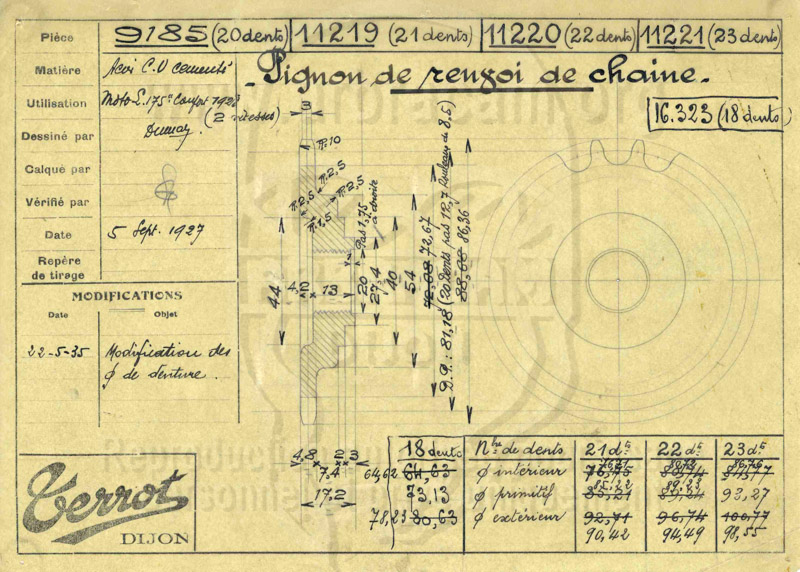 Pièce 9185 (20 dents) 11219 (21 dents) 11220 (22 dents) 11221 (23 dents)
Matière Acier C.V cementé
Pignon de renvoi de chaine.
Utilisation Moto L. 175cc Confort 1928
(2 vitesses)
16.323 (18 dents)
Dessiné par
Calqué par
Vérifié par
Date 5 Sept. 1927
Repère
de tirage
MODIFICATIONS
Date Objet
22-5-35 Modification des
φ de denture.
3
R.10
R.2,5
R.2,5
R.2,5
R.1,5
Pas 1,75
à droite
44
4,2
13
20
27,4
40
54
72,08 72,67
D.P.: 81,18 (20 Dents pas 12,7 Rouleaux de 8,5)
88,68 86,36
4,8 2 3
7,4
17,2
18 dents
64,62 64,63
73,13
78,23 80,63
Nbre de dents 21 dts 22 dts 23 dts
φ intérieur
φ primitif 93,27
φ extérieur 92,71 96,74 100,77
90,42 94,49 98,55
Terrot
DIJON